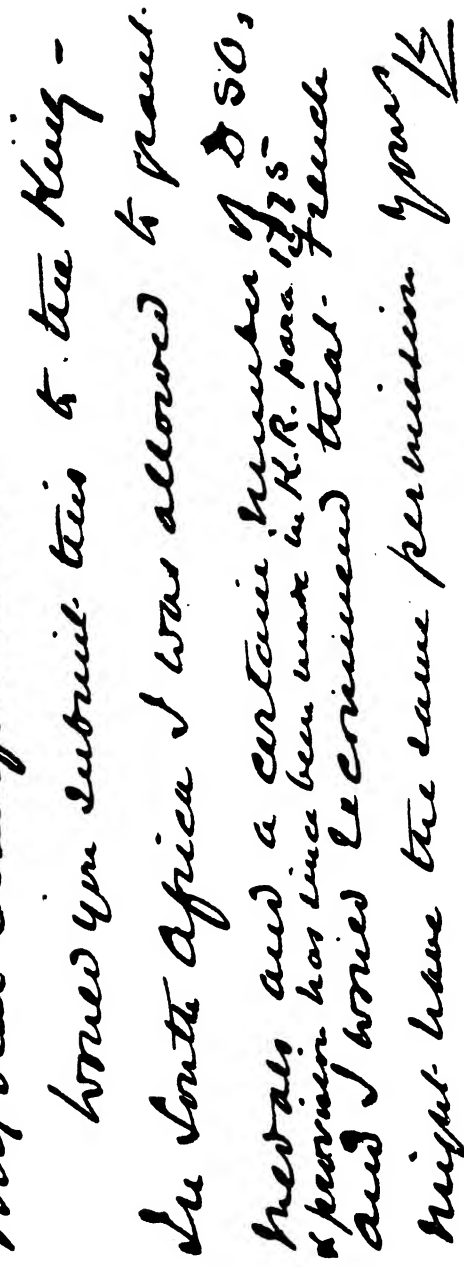 would you submit this to the King -
In South Africa I was allowed to grant
medals and a certain number of DSO,
& provision has since been made in K.R. para 1725
and I would recommend that French
might have the same permission
Yours K